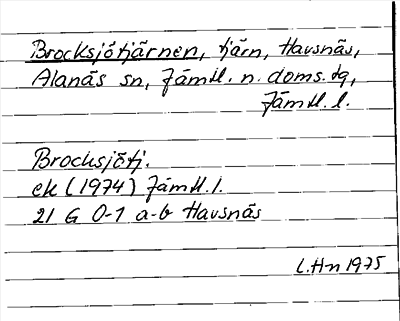 Brocksjötjärnen, tjärn, Havsnäs,
Alanäs sn, Jämtl. n. doms. tg,
Jämtl. l.
Brocksjötj.
ek (1974) Jämtl. l.
21 G 0-1 a-b Havsnäs
L. Hn 1975